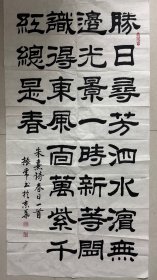 勝日尋芳泗水濱無
邊光景一時新等閑
識得東風面萬紫千
紅總是春
朱熹詩春日一首
書於京華